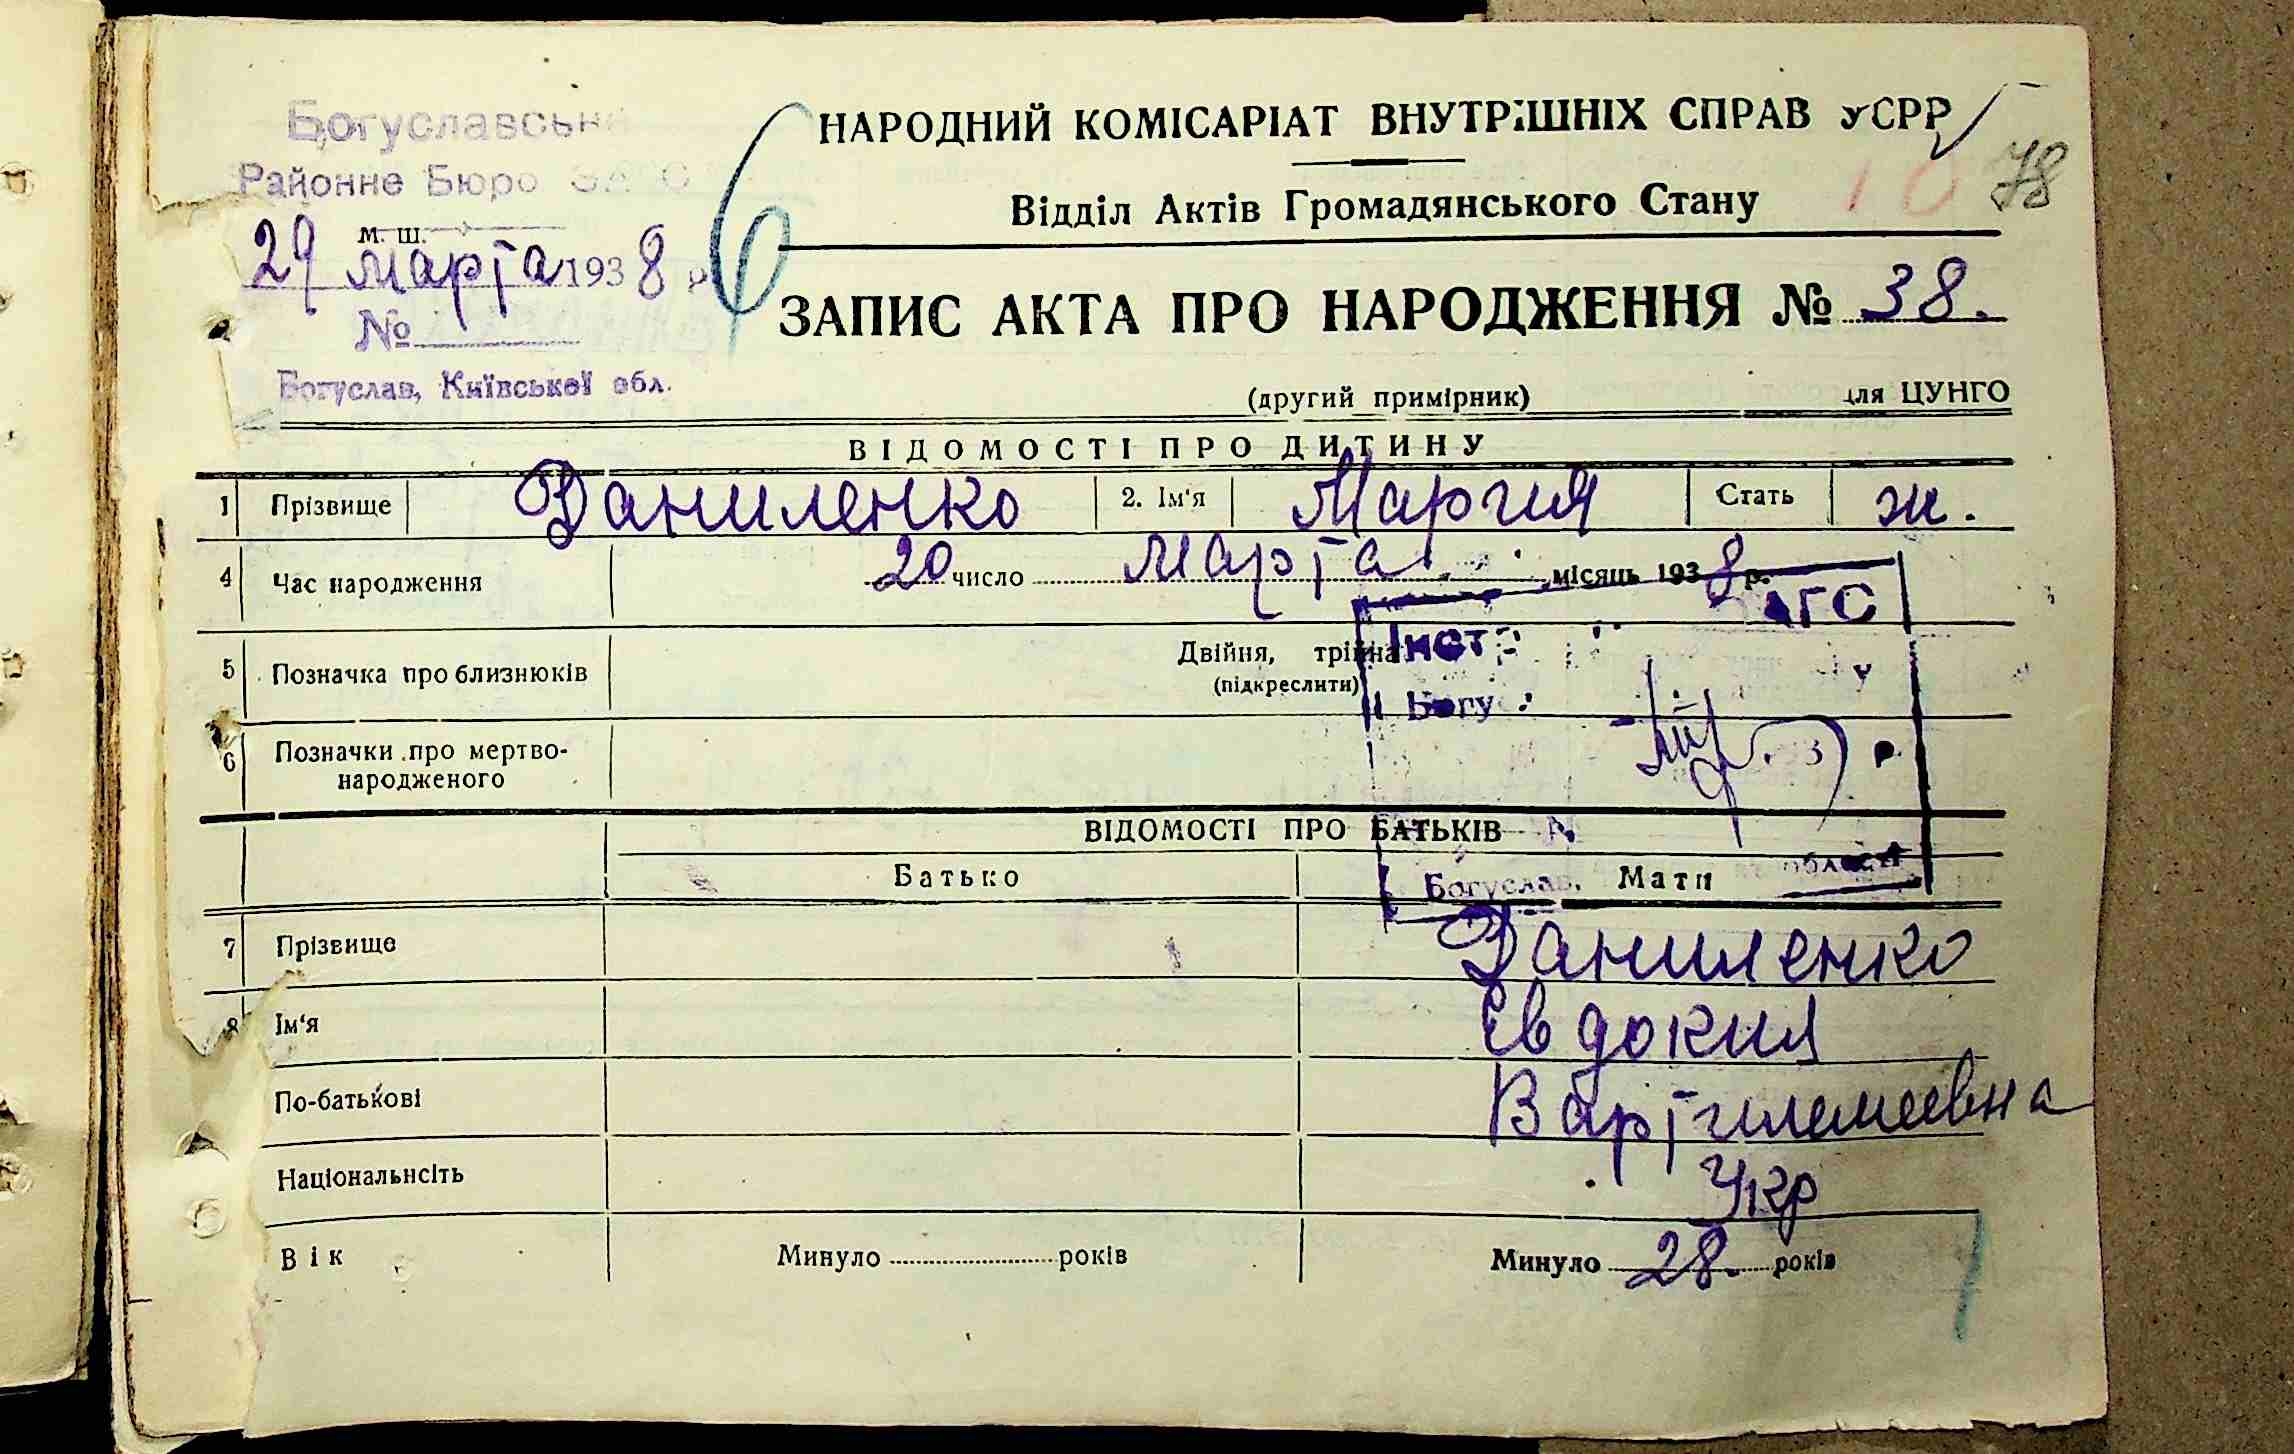 Богуславськ
Районне Бюро ЗАГС
м. ш.
29 марта 1938 р
№
Богуслав, Київської обл.
6
НАРОДНИЙ КОМІСАРІАТ ВНУТРІШНІХ СПРАВ УСРР
10 78
Відділ Актів Громадянського Стану
ЗАПИС АКТА ПРО НАРОДЖЕННЯ № 38.
(другий примірник) для ЦУНГО
ВІДОМОСТІ ПРО ДИТИНУ
1 Прізвище Даниленко 2. Ім'я Мария Стать ж.
4 Час народження 20 число марта місяць 1938 р.
5 Позначка про близнюків Двійня, трійня
(підкреслити)
6 Позначки про мертво-
народженого
АГС
Інст
Богу
р.
Богуслав, області
ВІДОМОСТІ ПРО БАТЬКІВ
Батько Мати
7 Прізвище Даниленко
8 Ім'я Евдокия
По-батькові Вартилемеевна
Національнсіть Укр
Вік Минуло років Минуло 28. років